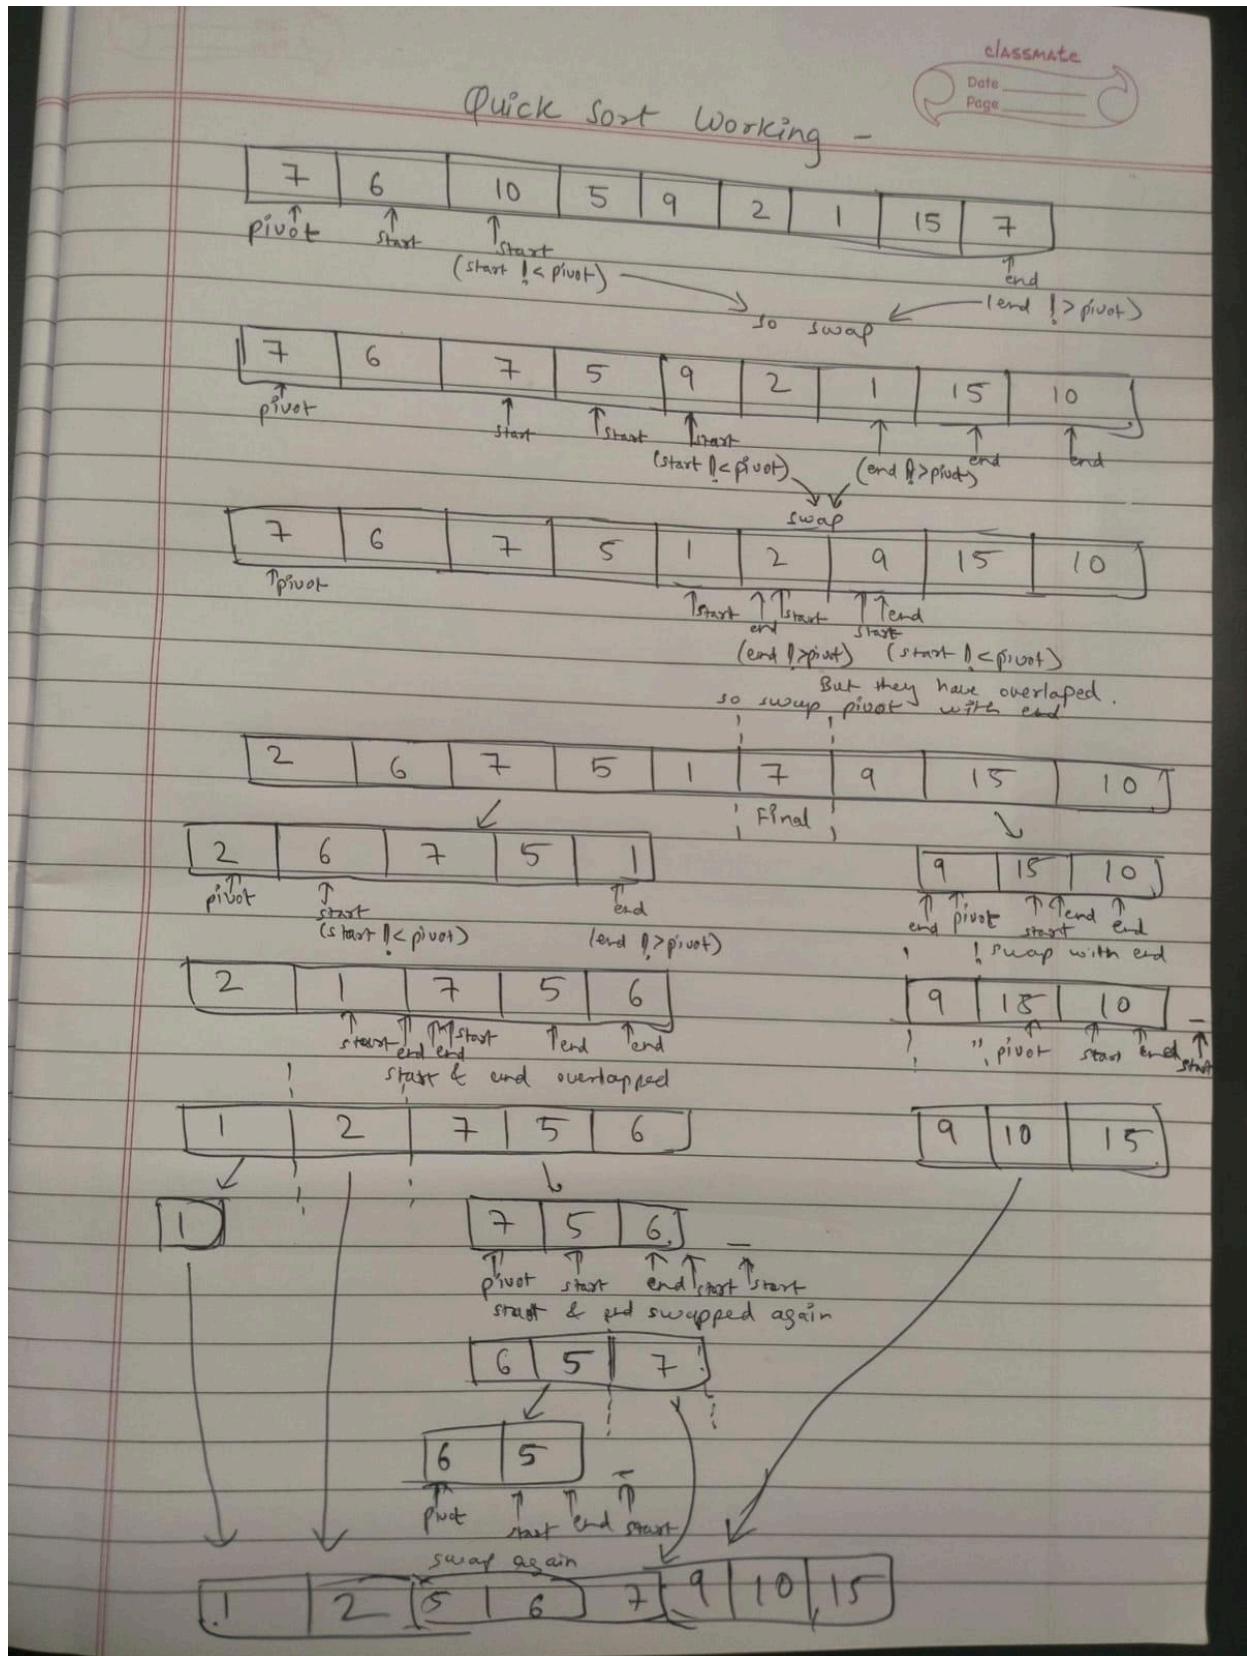 classmate
Date
Page
Quick Sort Working -
7 6 10 5 9 2 1 15 7
pivot start start end
(start !< pivot) (end !> pivot)
so swap
7 6 7 5 9 2 1 15 10
pivot start start start end end
(start !< pivot) (end !> pivot)
swap
7 6 7 5 1 2 9 15 10
pivot start end start start end
(end !> pivot) (start !< pivot)
But they have overlaped.
so swap pivot with end
2 6 7 5 1 7 9 15 10
Final
2 6 7 5 1 9 15 10
pivot start end end pivot start end end
(start !< pivot) (end !> pivot) swap with end
2 1 7 5 6 9 15 10 _
start end end start end end pivot start end start
start & end overlapped
1 2 7 5 6 9 10 15
1 7 5 6 _
pivot start end start start
start & end swapped again
6 5 7
6 5 _
pivot start end start
swap again
1 2 5 6 7 9 10 15